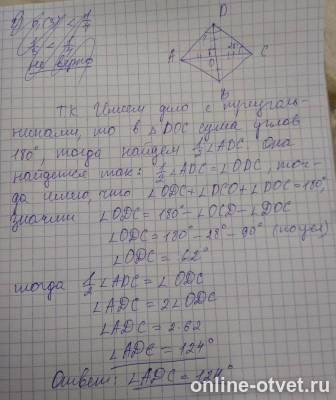 D
A
28°
C
O
B
не верно
Т.К. Имеем дело с треуголь-
никами, то в △DOC сумма углов
180°, тогда найдем ½∠ADC. Она
найдется так: ½∠ADC = ∠ODC, тог-
да ясно, что ∠ODC + ∠DCO + ∠DOC = 180°,
значит ∠ODC = 180° - ∠OCD - ∠DOC
∠ODC = 180° - 28° - 90°
∠ODC = 62°
тогда ½∠ADC = ∠ODC
∠ADC = 2∠ODC
∠ADC = 2·62
∠ADC = 124°
Ответ: ∠ADC = 124°
online-otvet.ru